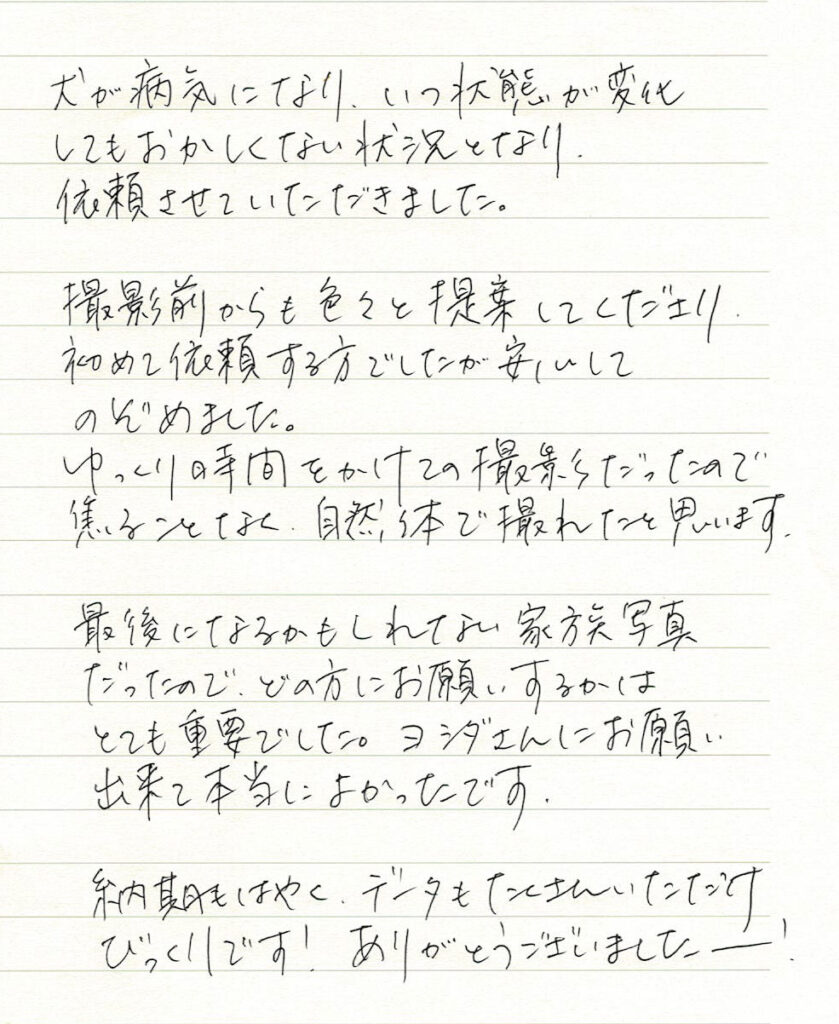 犬が病気になり、いつ状態が変化
してもおかしくない状況となり、
依頼させていただきました。
撮影前からも色々と提案してくださり、
初めて依頼する方でしたが安心して
のぞめました。
ゆっくり時間をかけての撮影だったので
焦ることなく、自然体で撮れたと思います。
最後になるかもしれない家族写真
だったので、どの方にお願いするかは
とても重要でした。ヨシダさんにお願い
出来て本当によかったです。
納期もはやく、データもたくさんいただけ
びっくりです！ありがとうございましたー！